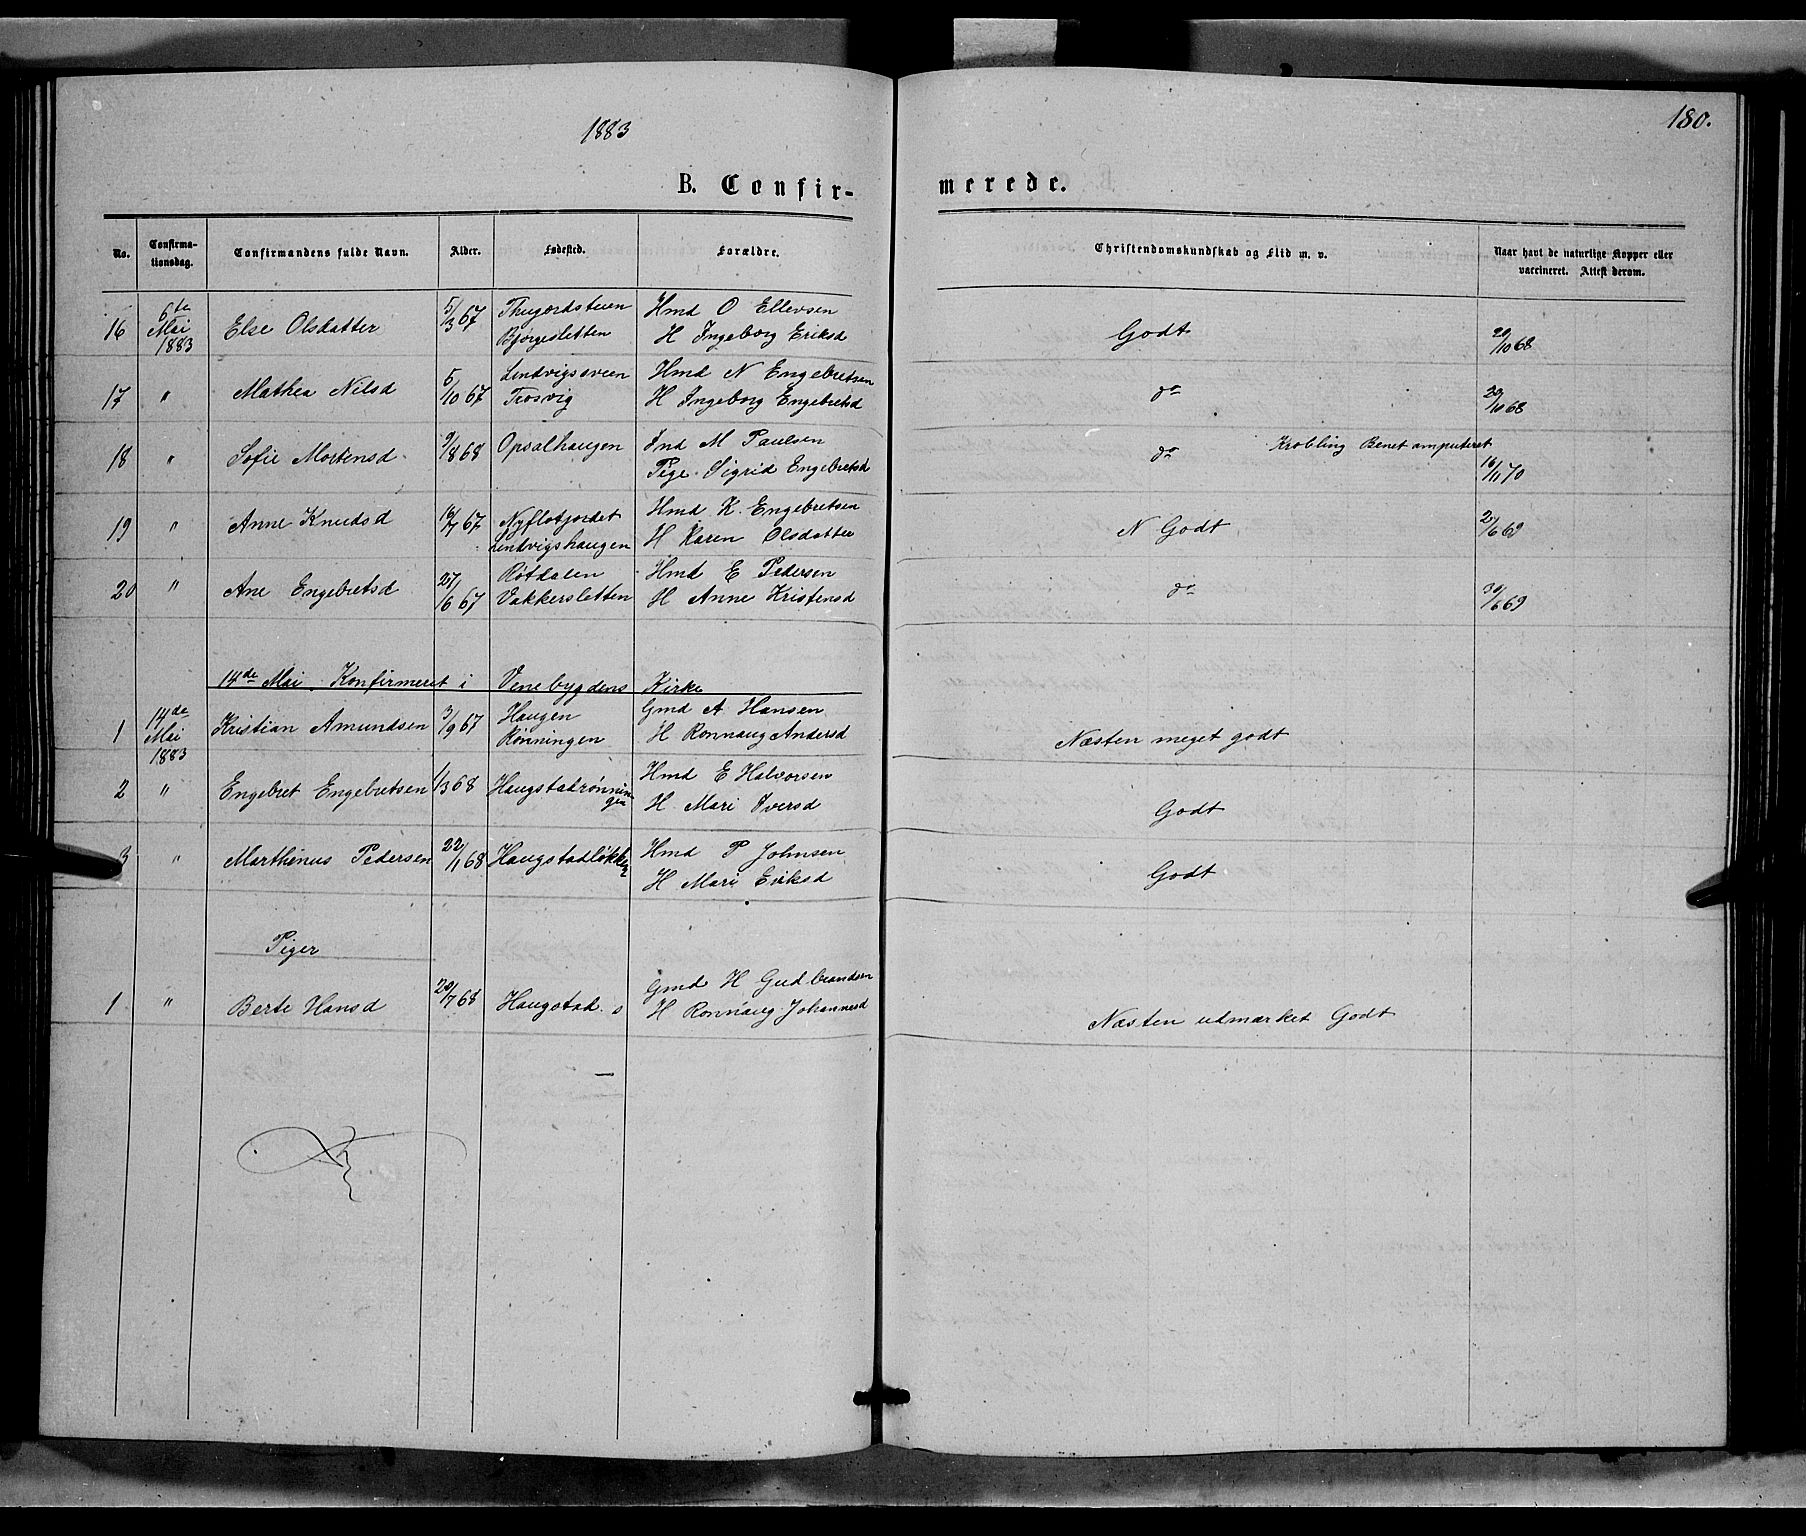 1883
180.
B. Confir-
merede.
No.
Confirma-
tionsdag.
Confirmandens fulde Navn.
Alder.
Fødested.
Forældre.
Christendomskundskab og Flid m. v.
Naar havt de naturlige Kopper eller
vaccineret. Attest derom.
16 6te Mai 1883 Else Olsdatter 5/3 67 Bjørgesletten Hmd O Ellevsen
H Ingeborg Eriksd Godt 29/10 68
17 " Mathea Nilsd 5/10 67 Lindvigsveen Hmd N Engebretsen
Trosvig H Ingeborg Engebretsd do 29/10 68
18 " Sofie Mortensd 9/8 68 Opsalhaugen Ind M Paulsen
Pige Sigrid Engebretsd do Krøbling Benet amputeret 16/11 70
19 " Anne Knudsd 16/7 67 Nyflotjordet Hmd K. Engebretsen
Lindvigshaugen H Karen Olsdatter N Godt 2/6 69
20 " Ane Engebretsd 27/6 67 Røtdalen Hmd E Pedersen
Vakkersletten H Anne Kristensd do 30/6 69
14de Mai Konfirmeret i Venebygdens Kirke
1 14de Mai 1883 Kristian Amundsen 3/9 67 Haugen Gmd A Hansen
Rønningen H Ronnaug Andersd Næsten meget godt
2 " Engebret Engebretsen 1/3 68 Haugstadrønningen Hmd E Halvorsen
H Mari Iversd Godt
3 " Marthinus Pedersen 22/1 68 Haugstadløkken Hmd P Johnsen
H Mari Eriksd Godt
Piger
1 " Berte Hansd 20/7 68 Haugstad s Gmd H Gudbrandsen
H Ronnaug Johannesd Næsten utmærket Godt